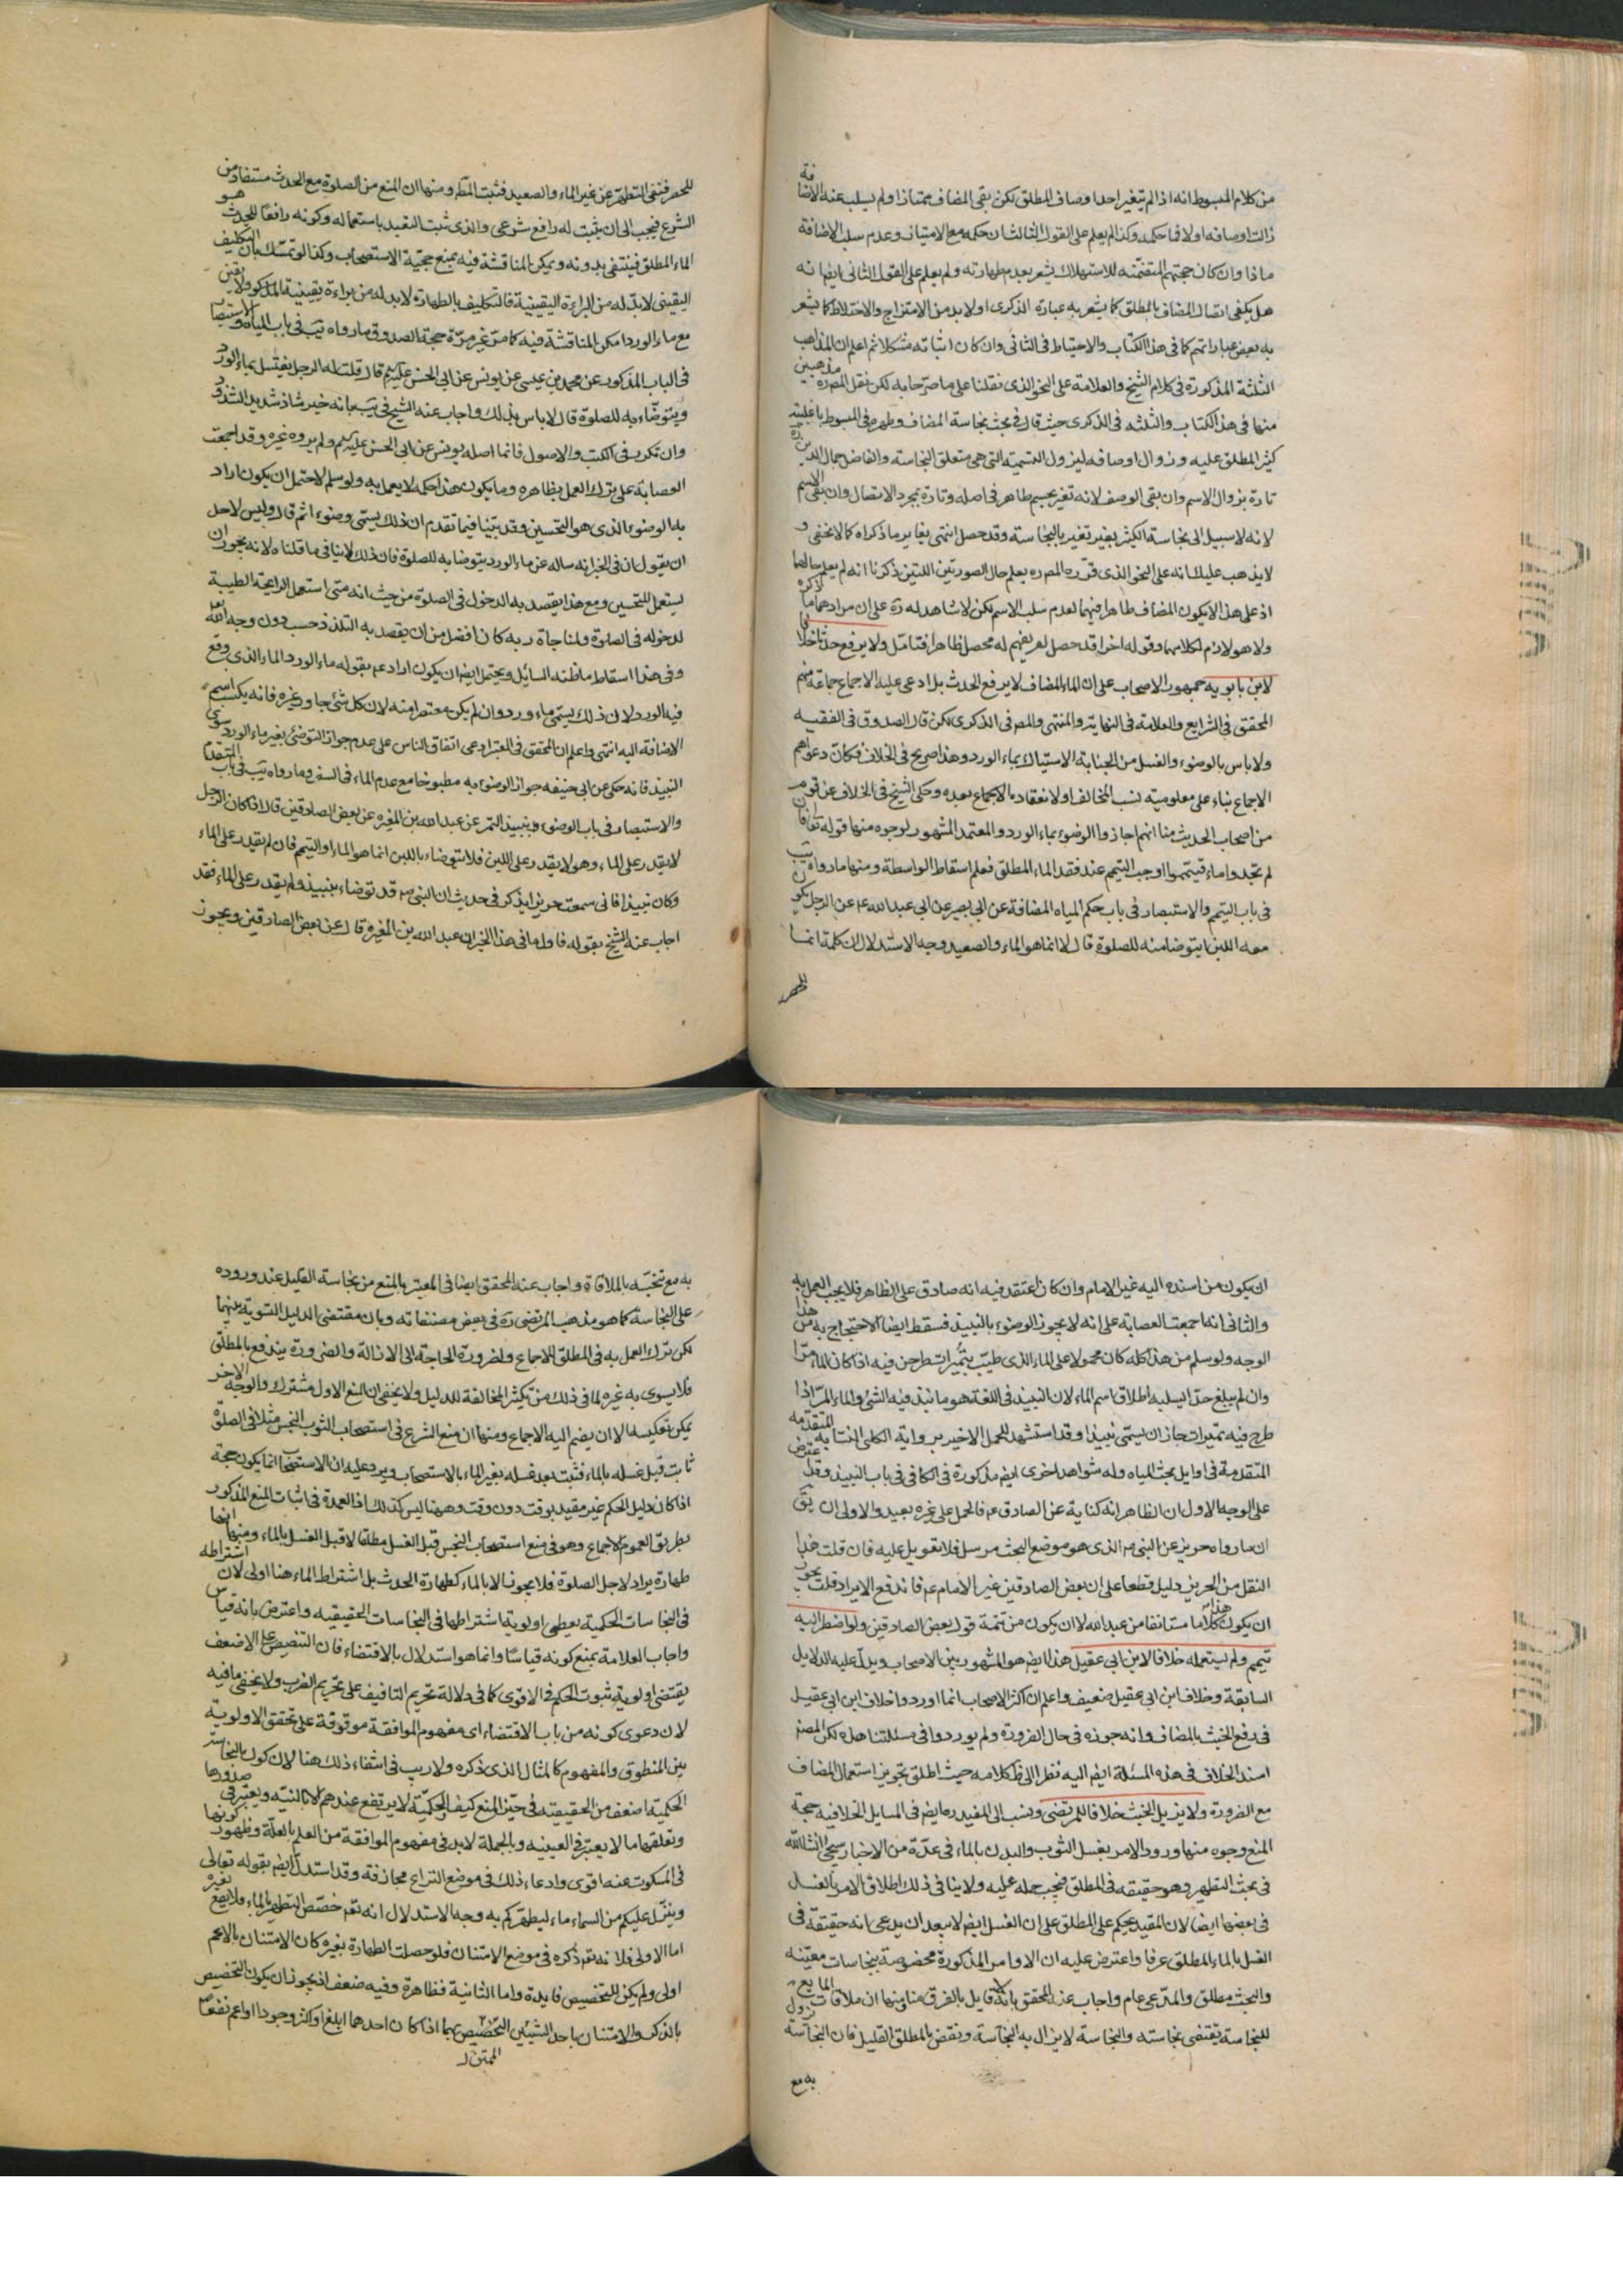 من كلام المبسوط انه اذا لم يتغير احد اوصاف المطلق لكن بقى المضاف ممتازا ولم يسلب عنه الاضافة
زالت اوصافه اولا فما حكمه وكذا لم يعلم على القول الثالث ان حكمه مع الامتياز وعدم سلب الاضافة
ماذا وان كان حجتهم المتضمنه للاستهلاك يشعر بعدم طهارته ولم يعلم على القول الثاني ايضا انه
هل يكفى اتصال المضاف بالمطلق كما يشعر به عبارة الذكرى او لابد من الامتزاج والاختلاط كما يشعر
به بعض عباراتهم كما في هذا الكتاب والاحتياط في الثاني وان كان اثباته مشكلا ثم اعلم ان المذاهب
الثلثة المذكورة في كلام الشيخ والعلامة على النحو الذى نقلنا على ما صرحا به لكن نقل المصره مذهبين
منها في هذا الكتاب والثلثه في الذكرى حيث قال في بحث نجاسة المضاف وطهره في المبسوط باغلبية
كثير المطلق عليه وزوال اوصافه ليزول التسمية التى هى متعلق النجاسته والفاضل جمال الدين ره
تارة بزوال الاسم وان بقى الوصف لانه تغير بجسم طاهر في اصله وتارة بمجرد الاتصال وان بقى الاسم
لانه لا سبيل الى نجاسة الكثير بغير تغير بالنجاسة وقد حصل انتهى يغاير ما ذكراه كما لا يخفى و
لا يذهب عليك انه على النحو الذى قرره المصره يعلم حال الصورتين اللتين ذكرنا انه لم يعلم حالهما
اذ على هذا لا يكون المضاف طاهرا فيهما لعدم سلب الاسم لكن لا شاهد له ره على ان مرادهما ما ذكره
ولا هو لازم لكلامهما وقوله اخرا قد حصل لم يفهم له محصل ظاهرا فتامل ولا يرفع حدثا خلافا
لابن بابويه جمهور الاصحاب على ان الماء المضاف لا يرفع الحدث بل ادعى عليه الاجماع جماعة منهم
المحقق في الشرايع والعلامة في النهاية والمنتهى والمصر في الذكرى لكن قال الصدوق في الفقيه
ولا باس بالوضوء والغسل من الجنابة والاستياك بماء الورد وهذا صريح في الخلاف فكان دعواهم
الاجماع بناء على معلوميته نسب المخالف او لانعقاده الاجماع بعده وحكى الشيخ في الخلاف عن قوم
من اصحاب الحديث منا انهم اجازوا الوضوء بماء الورد والمعتمد المشهور لوجوه منها قوله تعالى فان
لم تجدوا ماء فتيمموا اوجب التيمم عند فقد الماء المطلق فعلم اسقاط الواسطة ومنها ما رواه يب
في باب التيمم والاستبصار في باب حكم المياه المضافة عن ابي بصير عن ابي عبد الله عم عن الرجل يكون
معه اللبن ايتوضا منه للصلوة قال لا انما هو الماء والصعيد وجه الاستدلال ان كلمة انما
للحصر
للحصر فنفى التطهر عن غير الماء والصعيد فثبت المط ومنها ان المنع من الصلوة مع الحدث مستفاد من
الشرع فيجب الى ان يثبت له رافع شرعى والذى ثبت التعبد باستعماله وكونه رافعا للحدث هو
الماء المطلق فينتفى بدونه ويمكن المناقشة فيه بمنع حجية الاستصحاب وكذا لو تمسك بان التكليف
اليقينى لابد له من البراءة اليقينية فالتكليف بالطهارة لابد له من براءة يقينية المذكور ولا يقين
مع ماء الورد امكن المناقشة فيه كما مر غير مرة حجة الصدوق ما رواه يب في باب المياه والاستبصار
في الباب المذكور عن محمد بن عيسى عن يونس عن ابي الحسن عليه السلم قال قلت له الرجل يغتسل بماء الورد
ويتوضاء به للصلوة قال لا باس بذلك واجاب عنه الشيخ في يب بانه خبر شاذ شديد الشذوذ
وان تكرر في الكتب والاصول فانما اصله يونس عن ابي الحسن عليه السلم ولم يروه غيره وقد اجمعت
العصابة على ترك العمل بظاهره وما يكون هذا حكمه لا يعمل به ولو سلم لاحتمل ان يكون اراد
به الوضوء الذى هو التحسين وقد بينا فيما تقدم ان ذلك يسمى وضوء اثم قال وليس لاحد
ان يقول ان في الخبر انه ساله عن ماء الورد يتوضا به للصلوة فان ذلك لا ينافى ما قلناه لانه يجوز ان
يستعمل للتحسين ومع هذا يقصد به الدخول في الصلوة من حيث انه متى استعمل الرايحة الطيبة
لدخوله في الصلوة ولمناجاة ربه كان افضل من ان يقصد به التلذذ حسب دون وجه الله تعالى
وفي هذا اسقاط ما ظنه السائل ويحتمل ايضا ان يكون اراد عم بقوله ماء الورد الماء الذى وقع
فيه الورد لان ذلك يسمى ماء ورد وان لم يكن معتصرا منه لان كل شئ جاور غيره فانه يكسبه اسم
الاضافة اليه انتهى واعلم ان المحقق في المعتبر ادعى اتفاق الناس على عدم جواز التوضئ بغير ماء الورد سوى
النبيذ فانه حكى عن ابي حنيفه جواز الوضوء به مطبوخا مع عدم الماء في السفر وما رواه يب في باب المتقدم
والاستبصار في باب الوضوء بنبيذ التمر عن عبد الله بن المغيره عن بعض الصادقين قال اذا كان الرجل
لا يقدر على الماء وهو لا يقدر على اللبن فلا يتوضاء باللبن انما هو الماء او التيمم فان لم يقدر على الماء
وكان نبيذا فاني سمعت حريزا يذكر في حديث ان النبى ص قد توضاء بنبيذ ولم يقدر على الماء فقد
اجاب عنه الشيخ بقوله فاول ما في هذا الخبر ان عبد الله بن المغيره قال عن بعض الصادقين ويجوز
ان يكون من اسنده اليه غير الامام وان كان اعتقد فيه انه صادق على الظاهر فلا يجب العمل به
والثاني انه اجمعت العصابة على انه لا يجوز الوضوء بالنبيذ فسقط ايضا الاحتجاج به من هذا
الوجه ولو سلم من هذا كله كان محمولا على الماء الذى طيب بتميرات طرحن فيه اذا كان الماء مرا
وان لم يبلغ حدا يسلبه اطلاق اسم الماء لان النبيذ في اللغة هو ما نبذ فيه الشئ والماء المر اذا
طرح فيه تميرات جاز ان يسمى نبيذا وقد استشهد للحمل الاخير برواية الكلبى النسابه المتقدمه
المتقدمة في اوايل بحث المياه وله شواهد اخرى ايضا مذكورة في الكافى في باب النبيذ وقد اعترض
على الوجه الاول ان الظاهر انه كناية عن الصادق عم فالحمل على غيره بعيد والاولى ان يق
ان ما رواه حريز عن النبى ص الذى هو موضع البحث مرسل فلا تعويل عليه فان قلت هذا
النقل من الحريز دليل قطعا على ان بعض الصادقين غير الامام عم فاندفع الايراد قلت يجوز
ان يكون هذا كلاما مستانفا من عبد الله لا ان يكون من تتمة قول بعض الصادقين ولو اضطر اليه
تيمم ولم يستعمله خلافا لابن ابي عقيل هذا ايضا هو المشهور بين الاصحاب ويدل عليه الدلايل
السابقة وخلاف ابن ابي عقيل ضعيف واعلم ان اكثر الاصحاب انما اوردوا خلاف ابن ابي عقيل
في رفع الخبث بالمضاف وانه جوزه في حال الضرورة ولم يوردوا في مسئلتنا هذه لكن المصنف
اسند الخلاف في هذه المسئلة ايضا اليه نظرا الى ظ كلامه حيث اطلق تجويز استعمال المضاف
مع الضرورة ولا يزيل الخبث خلافا للمرتضى ونسب الى المفيد ره ايضا في المسايل الخلافيه حجة
المنع وجوه منها ورود الامر بغسل الثوب والبدن بالماء في عدة من الاخبار سيجئ انشاالله
في بحث التطهير وهو حقيقه في المطلق فيجب حمله عليه ولا ينافى ذلك اطلاق الامر بالغسل
في بعضها ايضا لان المقيد يحكم على المطلق على ان الغسل ايضا لا يبعد ان يدعى انه حقيقة في
الغسل بالماء المطلق عرفا واعترض عليه ان الاوامر المذكورة مخصوصة بنجاسات معينه
والبحث مطلق والمدعى عام واجاب عنه المحقق بانه لا قايل بالفرق منا ومنها ان ملاقات المايع
للنجاسة يقتضى نجاسته والنجاسة لا يزال به النجاسة ونقض بالمطلق القليل فان النجاسة تزول
به مع
به مع تنجسه بالملاقاة واجاب عنه المحقق ايضا في المعتبر بالمنع من نجاسة القليل عند وروده
على النجاسة كما هو مذهب المرتضى ره في بعض مصنفاته وبان مقتضى الدليل التسوية بينهما
لكن ترك العمل به في المطلق للاجماع ولضرورة الحاجة الى الازالة والضرورة يندفع بالمطلق
فلا يسوى به غيره لما في ذلك من تكثير المخالفة للدليل ولا يخفى ان المنع الاول مشترك والوجه الاخر
يمكن تعكيسه الا ان يضم اليه الاجماع ومنها ان منع الشرع في استصحاب الثوب النجس مثلا في الصلوة
ثابت قبل غسله بالماء فثبت بعد غسله بغير الماء بالاستصحاب ويرد عليه ان الاستصحاب انما يكون حجة
اذا كان دليل الحكم غير مقيد بوقت دون وقت وههنا ليس كذلك اذ العمدة في اثبات المنع المذكور
بطريق العموم الاجماع وهو في منع استصحاب النجس قبل الغسل مطلقا لا قبل الغسل بالماء ومنها انها
طهارة يراد لاجل الصلوة فلا يجوز الا بالماء كطهارة الحدث بل اشتراط الماء هنا اولى لان اشتراطه
في النجاسات الحكمية يعطى اولوية اشتراطها في النجاسات الحقيقيه واعترض بانه قياس
واجاب العلامة بمنع كونه قياسا وانما هو استدلال بالاقتضاء فان التنصيص على الاضعف
يقتضى اولوية ثبوت الحكم في الاقوى كما في دلالة تحريم التافيف على تحريم الضرب ولا يخفى ما فيه
لان دعوى كونه من باب الاقتضاء اى مفهوم الموافقة موقوفة على تحقق الاولوية
بين المنطوق والمفهوم كالمثال الذى ذكره ولا ريب في انتفاء ذلك هنا لان كون النجاسة
الحكمية اضعف من الحقيقيه في حيز المنع كيف والحكمية لا يرتفع عندهم الا بالنية ويعتبر في صدورها
وتعلقها ما لا يعتبر في العينيه وبالجملة لابد في مفهوم الموافقة من العلم بالعلة وظهور كونها
في المسكوت عنه اقوى وادعاء ذلك في موضع النزاع مجازفة وقد استدل ايضا بقوله تعالى
وينزل عليكم من السماء ماء ليطهركم به وجه الاستدلال انه تعم خصص التطهير بالماء فلا يقع بغيره
اما الاولى فلانه تعم ذكره في موضع الامتنان فلو حصلت الطهارة بغيره كان الامتنان بالاعم
اولى ولم يكن للتخصيص فايدة واما الثانية فظاهرة وفيه ضعف اذ يجوز ان يكون التخصيص
بالذكر والامتنان باحد الشيئين الممتن بهما اذا كان احدهما ابلغ او اكثر وجودا او اعم نفعا